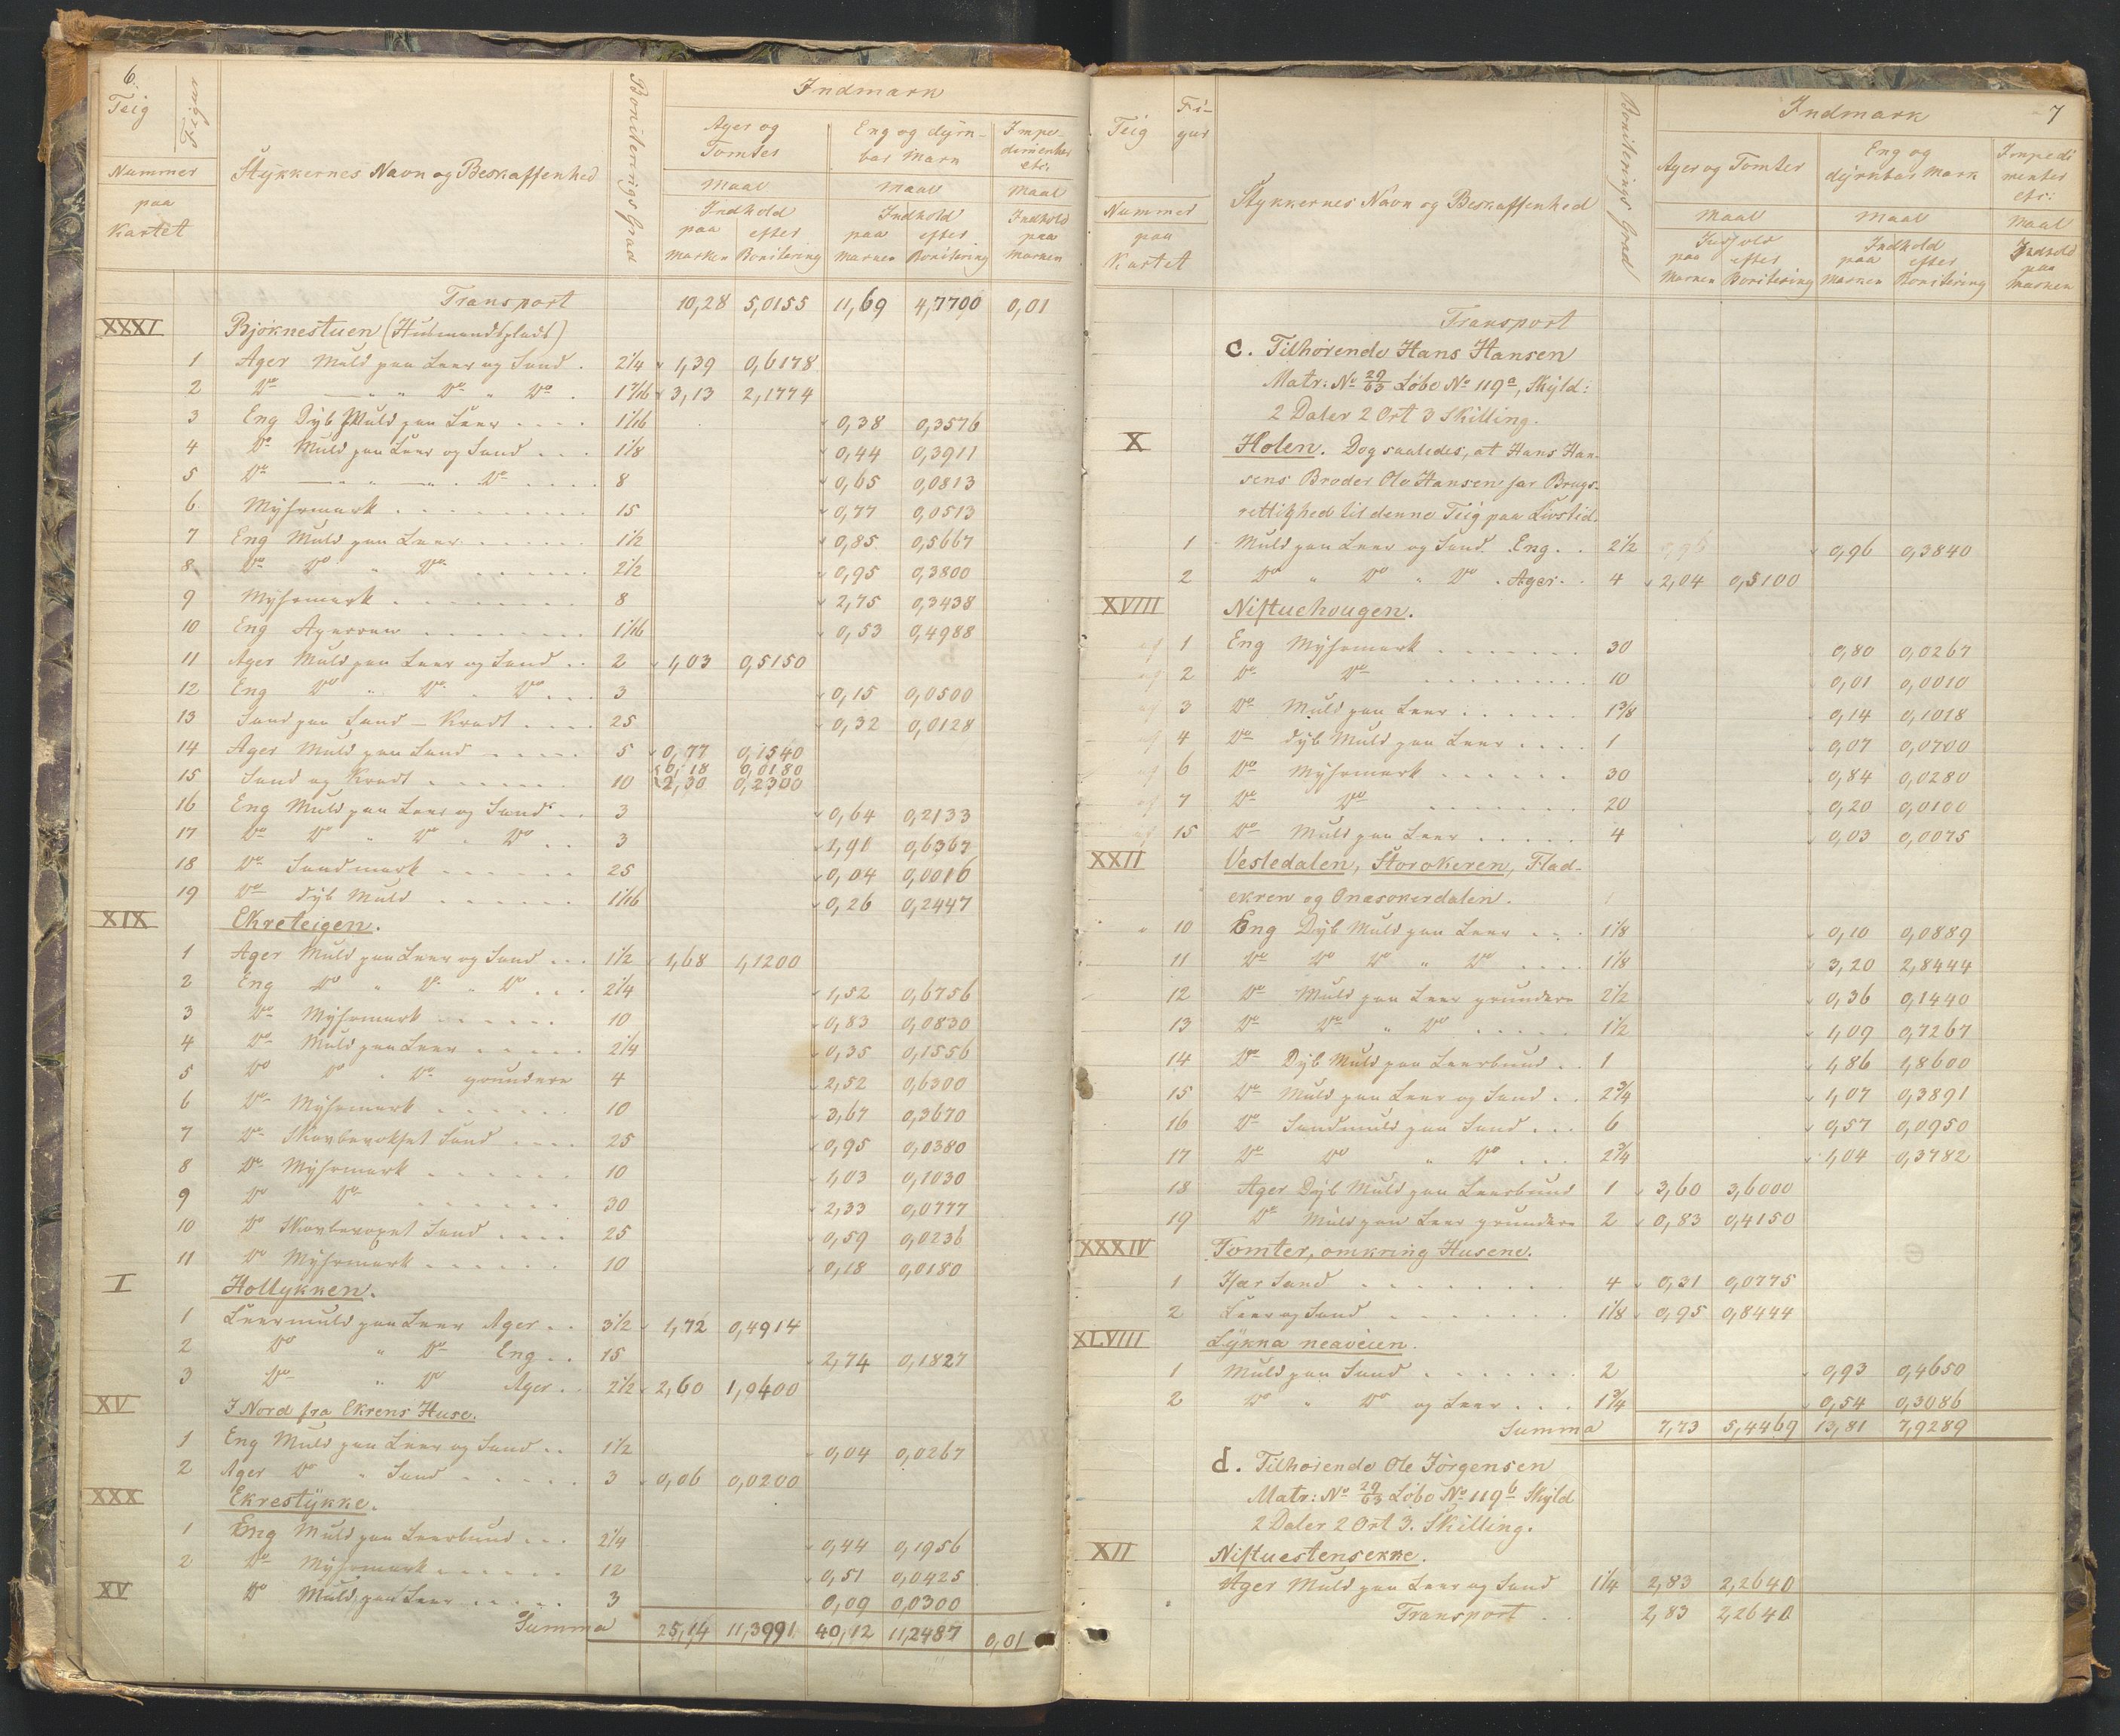 6.
Teig
Figur
Nummer
paa
Kartet
Stykkernes Navn og Beskaffenhed
Boniterings Grad
Indmark
Ager og Tomter
Eng og dyrkbar Mark
Impedimenter etc:
Maal Maal Maal
Indhold Indhold Indhold
paa Marken efter Bonitering paa Marken efter Bonitering paa Marken
Transport 10,28 5,0155 11,69 4,7700 0,01
XXXI Bjørknestuen (Husmandsplads)
1 Ager Muld paa Leer og Sand . 2¼ 1,39 0,6178
2 Do — " " Do " Do . 1 7/16 3,13 2,1774
3 Eng Dyb Muld paa Leer .... 1 1/16 0,38 0,3576
4 Do Muld paa Leer og Sand ... 1⅛ 0,44 0,3911
5 Do — " — . Do ..... 8 0,65 0,0813
6 Myhrmark ......... 15 0,77 0,0513
7 Eng Muld paa Leer ...... 1½ 0,85 0,5667
8 Do Do " Do ...... 2½ 0,95 0,3800
9 Myhrmark ........ 8 2,75 0,3438
10 Eng Agerren ........ 1 1/16 0,53 0,4988
11 Ager Muld paa Leer og Sand .. 2 1,03 0,5150
12 Eng Do " Do . Do ... 3 0,15 0,0500
13 Sand paa Sand - Kradt .... 25 0,32 0,0128
14 Ager Muld paa Sand ..... 5 0,77 0,1540
15 Sand og Kradt ...... 10 {0,18 0,0180
{2,30 0,2300
16 Eng Muld paa Leer og Sand .. 3 0,64 0,2133
17 Do Do " Do . Do .. 3 1,91 0,6367
18 Do Sandmark ...... 25 0,04 0,0016
19 Do Dyb Muld ...... 1 1/16 0,26 0,2447
XIX Ekreteigen.
1 Ager Muld paa Leer og Sand ... 1½ 1,68 1,1200
2 Eng Do " Do " Do ... 2¼ 1,52 0,6756
3 Do Myhrmark ...... 10 0,83 0,0830
4 Do Muld paa Leer ..... 2¼ 0,35 0,1556
5 Do Do " Do grundere 4 2,52 0,6300
6 Do Myhrmark ...... 10 3,67 0,3670
7 Do Skovbevokset Sand .... 25 0,95 0,0380
8 Do Myhrmark ...... 10 1,03 0,1030
9 Do Do ...... 30 2,33 0,0777
10 Do Skovbevoxet Sand .... 25 0,59 0,0236
11 Do Myhrmark ...... 10 0,18 0,0180
I Hollykken.
1 Leermuld paa Leer Ager .. 3½ 1,72 0,4914
2 Do " Do Eng .. 15 2,74 0,1827
3 Do " Do Ager .. 2½ 2,60 1,0400
XV I Nord fra Ekrens Huse.
1 Eng Muld paa Leer og Sand .. 1½ 0,04 0,0267
2 Ager Do " Sand ...... 3 0,06 0,0200
XXX Ekrestykke.
1 Eng Muld paa Leerbund ... 2¼ 0,44 0,1956
2 Do Myhrmark ...... 12 0,51 0,0425
XV Do Muld paa Leer ..... 3 0,09 0,0300
Summa 25,14 11,3991 40,12 11,2487 0,01
7
Teig
Figur
Nummer
paa
Kartet
Stykkernes Navn og Beskaffenhed
Boniterings Grad
Indmark
Ager og Tomter
Eng og dyrkbar Mark
Impedimenter etc:
Maal Maal Maal
Indhold Indhold Indhold
paa Marken efter Bonitering paa Marken efter Bonitering paa Marken
Transport
c. Tilhørende Hans Hansen
Matr: No 29/63 Løbe No 119a, Skyld:
2 Daler 2 Ort 3 Skilling.
X Holen. Dog saaledes, at Hans Han-
sens Broder Ole Hansen har Brugs-
rettighed til denne Teig paa Livstid.
1 Muld paa Leer og Sand Eng .. 2½ 0,96 0,3840
2 Do " Do " Do . Ager .. 4 2,04 0,5100
XVIII Nistuehougen.
af 1 Eng Myhrmark ....... 30 0,80 0,0267
af 2 Do Do ......... 10 0,01 0,0010
af 3 Do Muld paa Leer ...... 1⅜ 0,14 0,1018
af 4 Do dyb Muld paa Leer .... 1 0,07 0,0700
af 6 Do Myhrmark ...... 30 0,84 0,0280
af 7 Do Do ....... 20 0,20 0,0100
af 15 Do Muld paa Leer ..... 4 0,03 0,0075
XXII Vesledalen, Storekeren, Flad-
ekren og Onasokerdalen.
" 10 Eng Dyb Muld paa Leer ... 1⅛ 0,10 0,0889
11 Do Do Do " Do .... 1⅛ 3,20 2,8444
12 Do Muld paa Leer grundere 2½ 0,36 0,1440
13 Do Do " Do ..... 1½ 1,09 0,7267
14 Do Dyb Muld paa Leerbund .. 1 1,86 1,8600
15 Do Muld paa Leer og Sand .. 2¾ 1,07 0,3891
16 Do Sandmuld paa Sand ... 6 0,57 0,0950
17 Do Do " Do ... 2¾ 1,04 0,3782
18 Ager Dyb Muld paa Leerbund 1 3,60 3,6000
19 Do Muld paa Leer grundere 2 0,83 0,4150
XXXIV Tomter, omkring Husene.
1 Især Sand ........ 4 0,31 0,0775
2 Leer og Sand ....... 1⅛ 0,95 0,8444
XLVIII Lykna neaveien.
1 Muld paa Sand ....... 2 0,93 0,4650
2 Do " Do og Leer ... 1¾ 0,54 0,3086
Summa 7,73 5,4469 13,81 7,9289
d. Tilhørende Ole Jørgensen
Matr: No 29/63 Løbe No 119b Skyld
2 Daler 2 Ort 3. Skilling.
XII Nistuestensekre.
Ager Muld paa Leer og Sand 1¼ 2,83 2,2640
Transport . 2,83 2,2640